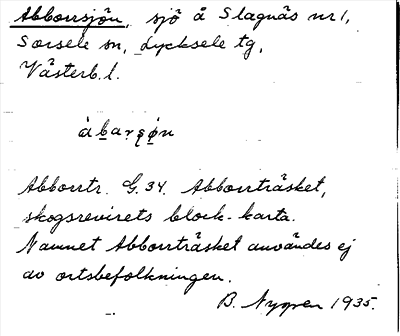 Abborrsjön, sjö å Slagnäs nr 1,
Sorsele sn, Lycksele tg,
Västerb. l.
àbaṛʂø̣n
Abborrtr. G. 34. Abborrträsket,
skogsrevirets block-karta.
Namnet Abborrträsket användes ej
av ortsbefolkningen.
B. Nygren 1935.